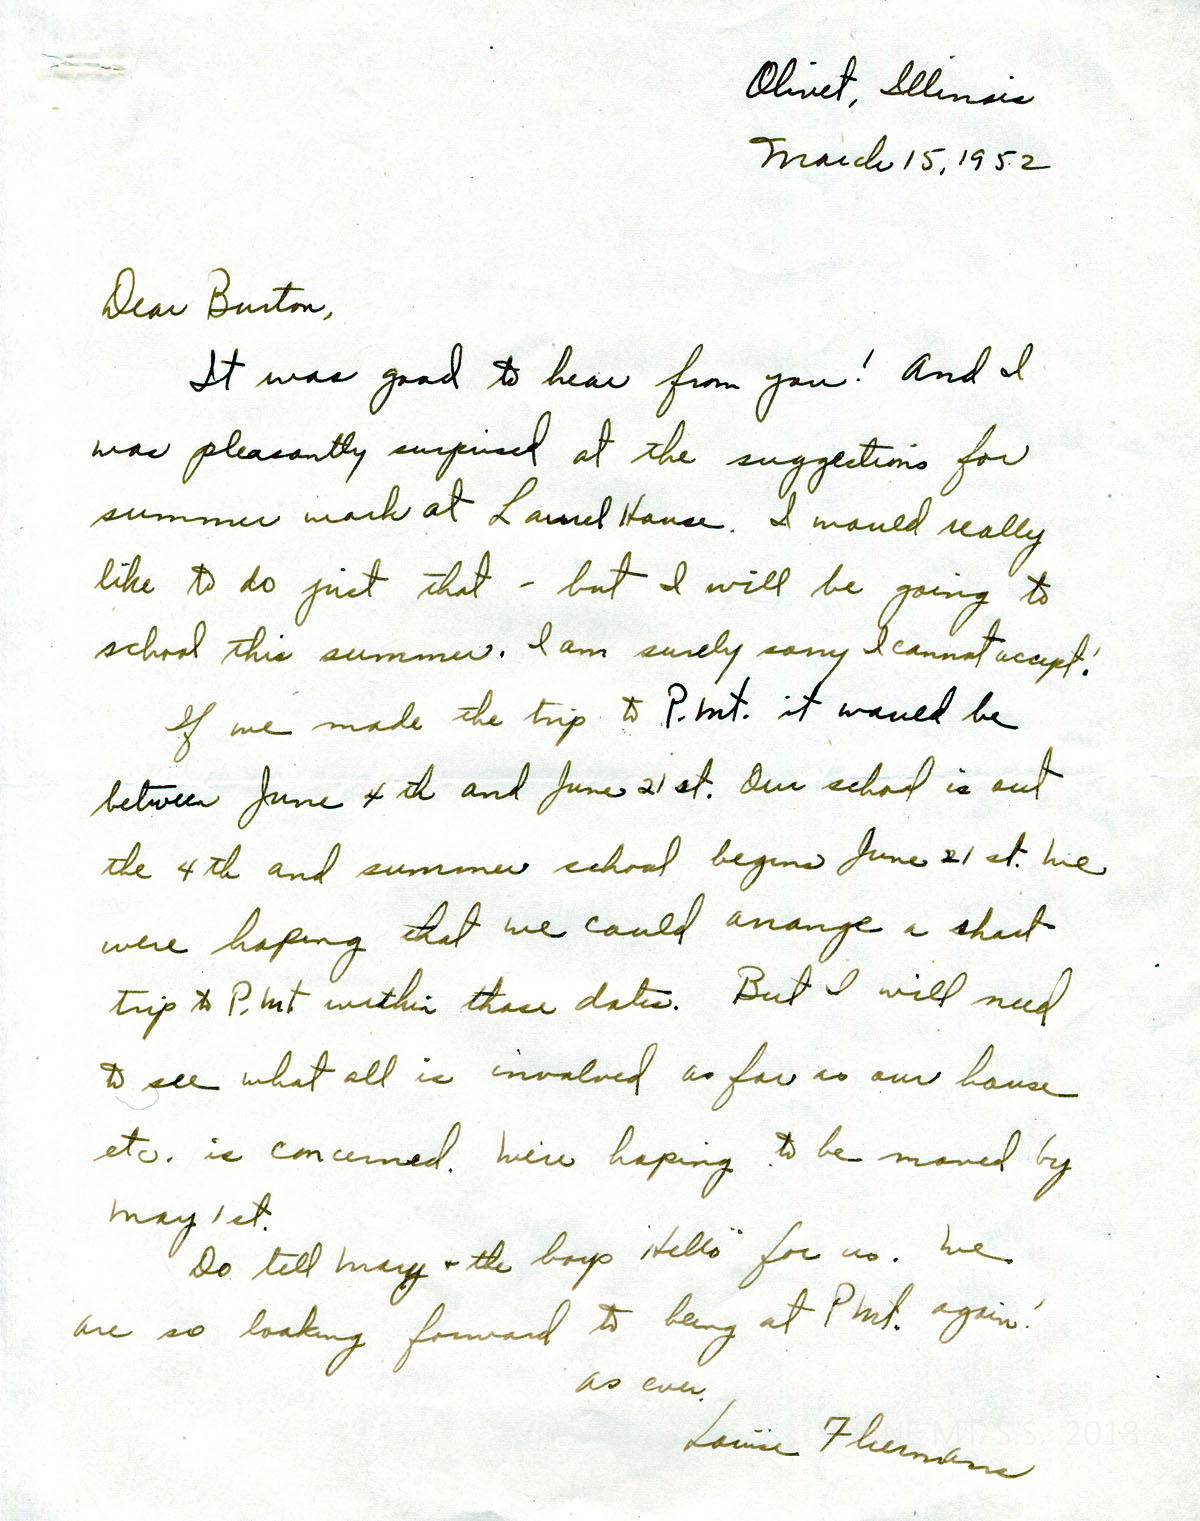 Olivet, Illinois
March 15, 1952
Dear Burton,
It was good to hear from you! And I
was pleasantly surprised at the suggestions for
summer work at Laurel House. I would really
like to do just that - but I will be going to
school this summer. I am surely sorry I cannot accept!
If we made the trip to P. Mt. it would be
between June 4th and June 21st. Our school is out
the 4th and summer school begins June 21st. We
were hoping that we could arrange a short
trip to P. Mt within those dates. But I will need
to see what all is involved as far as our house
etc. is concerned. We're hoping to be moved by
May 1st.
Do tell Mary + the boys "Hello" for us. We
are so looking forward to being at P Mt. again!
as ever,
Louise
MT. S.S. 2018